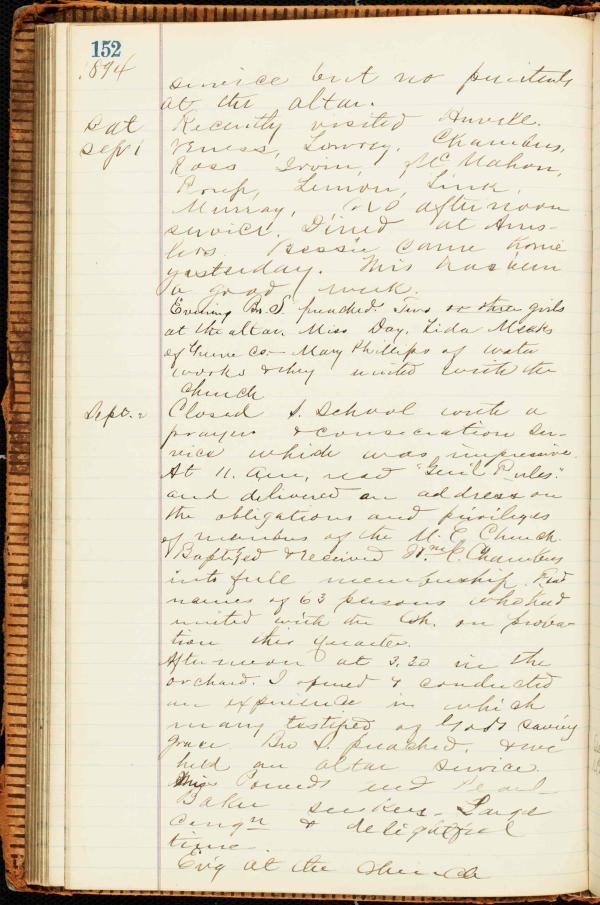 152
1894
service but no penitents
at the altar.
Sat Recently visited
Sept 1 Veness, Lowry, Chambers,
Ross Irvin, McMahon,
Roup, Lemon, Link,
Murray, afternoon
service. Dined at Ams-
lers. Bessie came home
yesterday. This has been
a good week.
Evening Br. S. preached. Two or three girls
at the altar. Miss Day, Lida Meeks
of Greene Co— Mary Phillips of water
works & they united with the
church
Sept. 2 Closed S. School with a
prayer & consecration ser-
vice which was impressive.
At 11. a.m, read "Gen'l Rules."
and delivered an address on
the obligations and privileges
of members of the M. E. Church.
Baptized & received Wm C. Chambers
into full membership. Read
names of 63 persons who had
united with the Ch. on proba-
tion this quarter.
Afternoon at 3.30 in the
orchard. I opened & conducted
an experience in which
many testified of God's saving
grace. Bro S. preached, & we
held an altar service.
Miss and
Baker seekers. Large
Congn & delightful
time.
Ev'g at the church